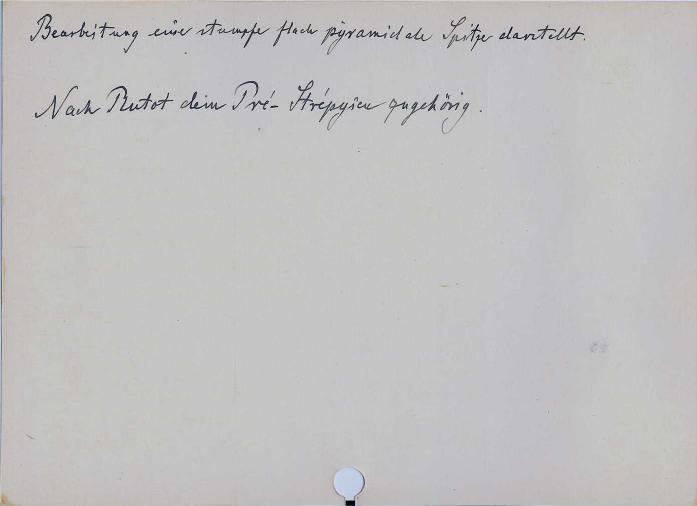 Bearbeitung eine stumpfe flach pyramidale Spitze darstellt.
Nach Rutot dem Pré-Strépyien zugehörig.